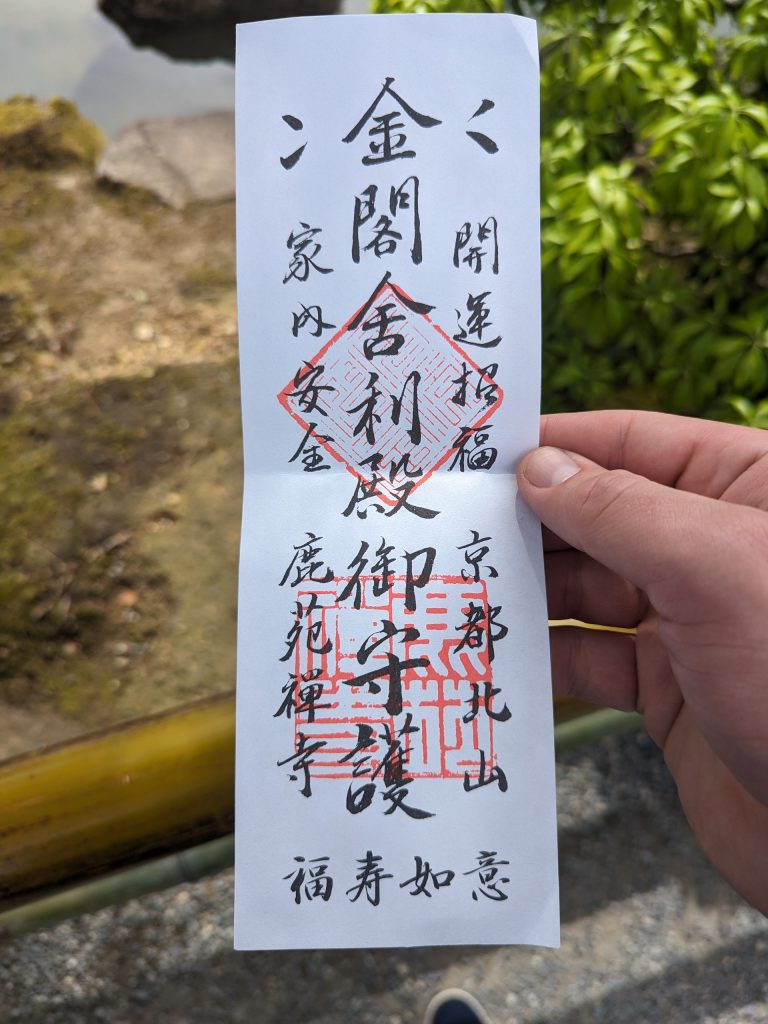 開運招福
京都北山
金閣舍利殿御守護
家内安全
鹿苑禪寺
福寿如意